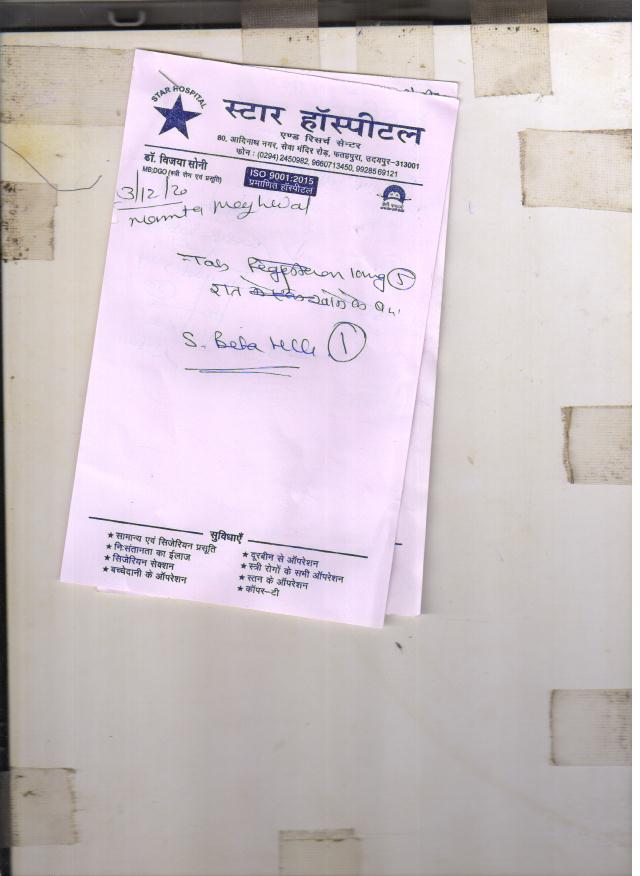 STAR HOSPITAL
स्टार हॉस्पीटल
एण्ड रिसर्च सेन्टर
80, आदिनाथ नगर, सेवा मंदिर रोड़, फतहपुरा, उदयपुर-313001
फोन : (0294) 2450982, 9660713450, 9928569121
डॉ. विजया सोनी
MB;DGO (स्त्री रोग एवं प्रसूति)
ISO 9001:2015
प्रमाणित हॉस्पीटल
3/12/20
Mamta Meghwal
Tab 5
रात
S. Beta HCG 1
सुविधाएँ
★ सामान्य एवं सिजेरियन प्रसूति
★ निःसंतानता का ईलाज
★ सिजेरियन सेक्शन
★ बच्चेदानी के ऑपरेशन
★ दूरबीन से ऑपरेशन
★ स्त्री रोगों के सभी ऑपरेशन
★ स्तन के ऑपरेशन
★ कॉपर-टी